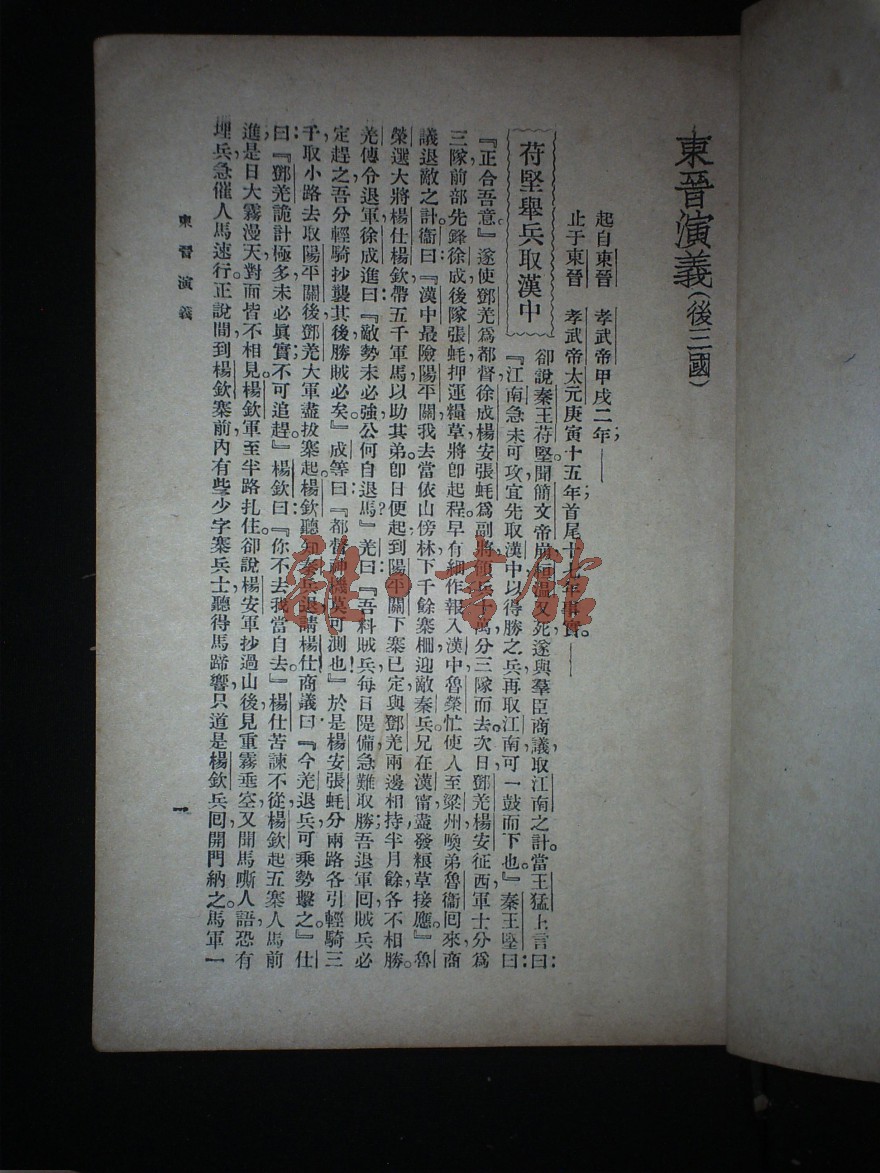 東晉演義(後三國)
起自東晉 孝武帝甲戌二年——;
止于東晉 孝武帝太元庚寅十五年;首尾十七年事實。——
苻堅舉兵取漢中
卻說秦王苻堅,聞簡文帝崩,桓溫又死,遂與羣臣商議取江南之計。當王猛上言曰:
『江南急未可攻,宜先取漢中,以得勝之兵,再取江南,可一鼓而下也。』秦王堅曰:
『正合吾意。』遂使鄧羌爲都督,徐成楊安張蚝爲副將,領兵十萬,分三隊而去。次日,鄧羌楊安征西軍士分爲
三隊,前部先鋒徐成,後隊張蚝,押運糧草,將卽起程。早有細作報入漢中,魯榮忙使人至梁州喚弟魯衞囘來,商
議退敵之計。衞曰:『漢中最險,陽平關我去當依山傍林,下千餘寨柵,迎敵秦兵。兄在漢甯,盡發粮草接應。』魯
榮選大將楊仕楊欽,帶五千軍馬以助其弟。卽日便起,到陽平關下寨已定,與鄧羌兩邊相持,半月餘,各不相勝。
羌傳令退軍。徐成進曰:『敵勢未必強,公何自退馬?』羌曰:『吾料賊兵每日隄備,急難取勝;吾退軍囘,賊兵必
定趕之,吾分輕騎抄襲其後,勝賊必矣。』成等曰:『都督神機莫可測也!』於是楊安張蚝分兩路,各引輕騎三
千,取小路去取陽平關後。鄧羌大軍盡拔寨起。楊欽聽知秦兵退,請楊仕商議曰:『今羌退兵,可乘勢擊之。』仕
曰:『鄧羌詭計極多,未必眞實;不可追趕。』楊欽曰:『你不去,我當自去。』楊仕苦諫不從,楊欽起五寨人馬前
進;是日大霧漫天,對面皆不相見,楊欽軍至半路扎住。卻說楊安軍抄過山後,見重霧垂空,又聞馬嘶人語,恐有
埋兵,急催人馬速行。正說間,到楊欽寨前,內有些少字寨兵士,聽得馬蹄響,只道是楊欽兵囘,開門納之。馬軍一
東晉演義
一